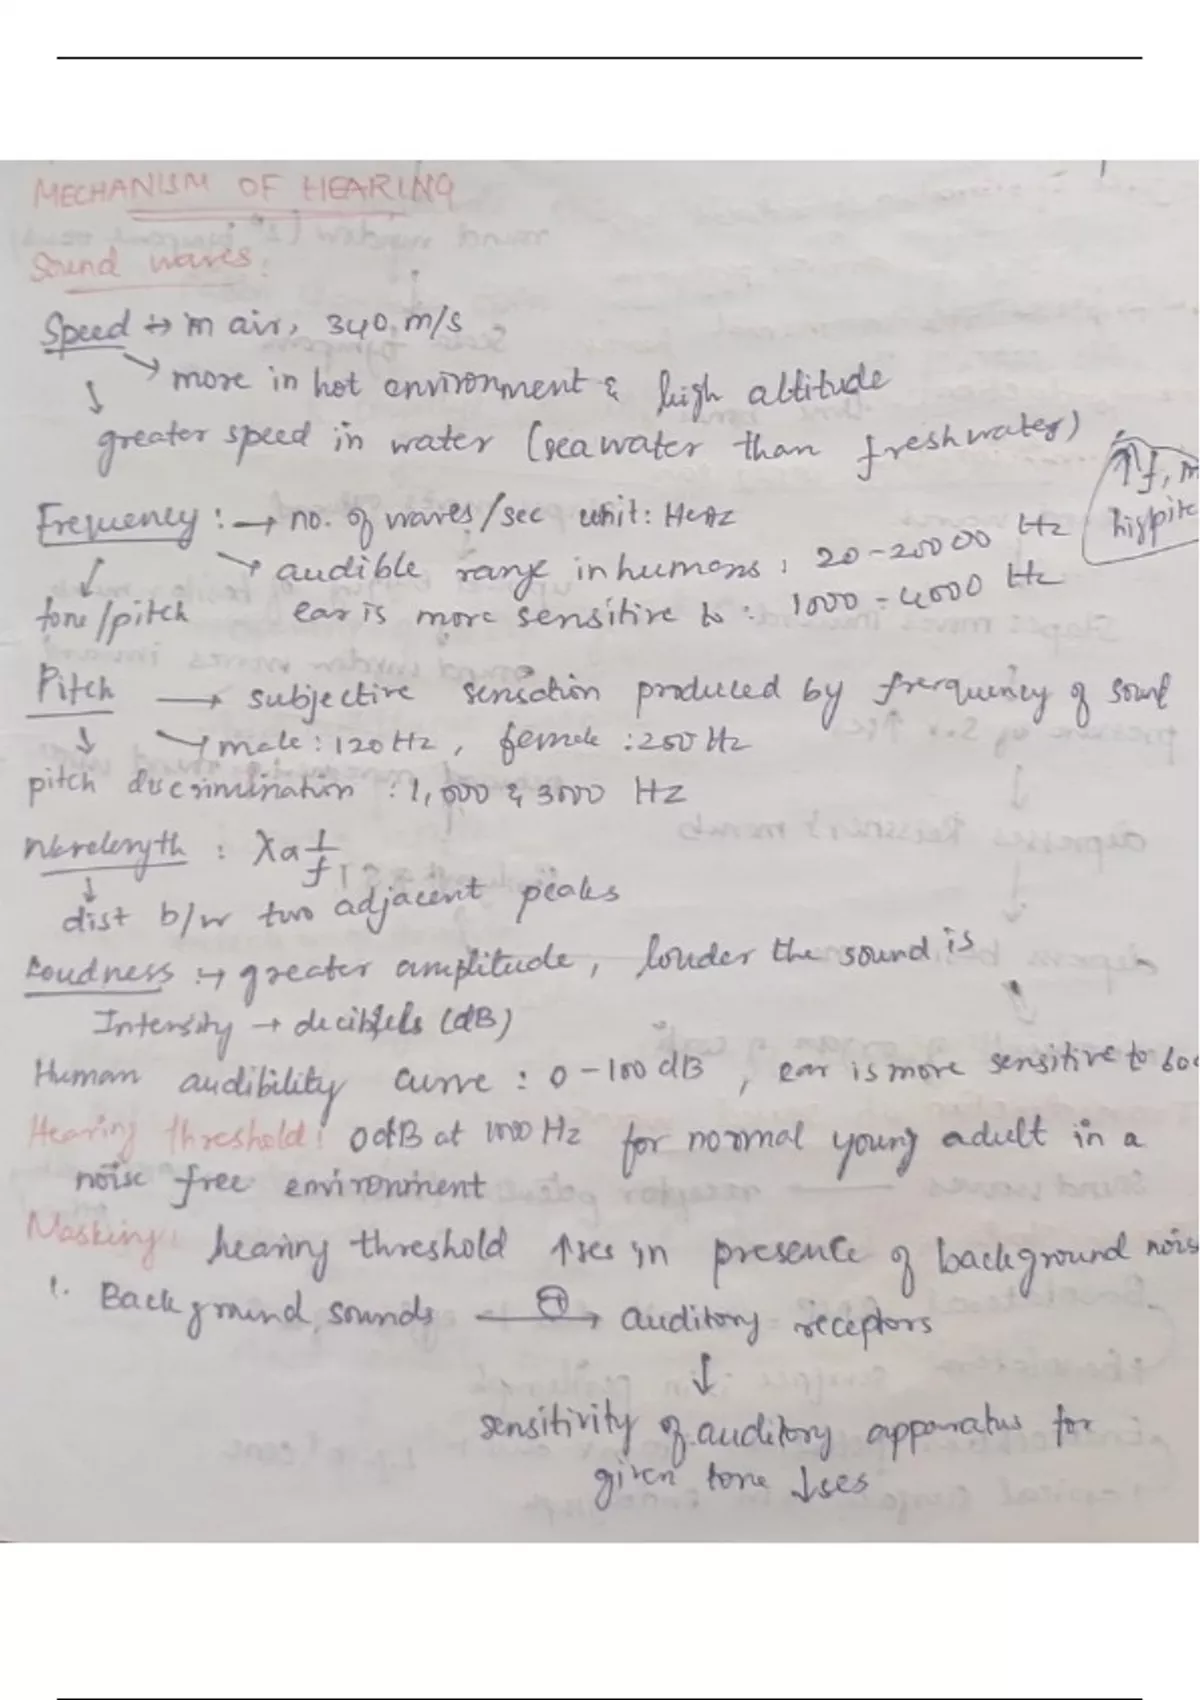 MECHANISM OF HEARING
Sound waves:
Speed → in air, 340 m/s
→ more in hot environment & high altitude
↓ greater speed in water (sea water than freshwater)
Frequency: → no. of waves/sec unit: Hertz
↑f,
→ audible range in humans: 20-20000 Hz
↓ tone/pitch ear is more sensitive to: 1000-4000 Hz
Pitch → subjective sensation produced by frequency of sound
→ male: 120 Hz, female: 250 Hz
↓ pitch discrimination: 1,000 & 3000 Hz
Wavelength: λ α 1/f
↓ dist b/w two adjacent peaks
Loudness → greater amplitude, louder the sound is
Intensity → decibels (dB)
Human audibility curve: 0-100 dB, ear is more sensitive to
Hearing threshold: 0 dB at 1000 Hz for normal young adult in a
noise free environment
Masking: hearing threshold ↑ses in presence of background
1. Background sounds → auditory receptors
↓
sensitivity of auditory apparatus for
given tone ↓ses